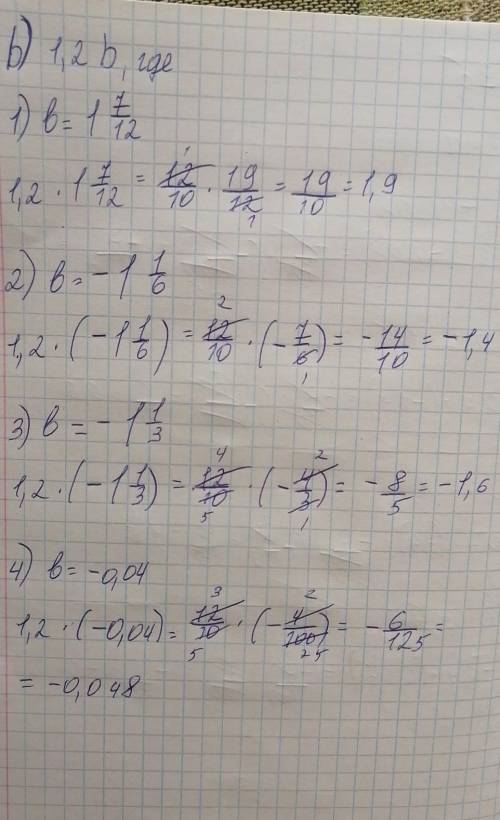 b) 1,2 b, где
1) b = 1 7/12
1,2 · 1 7/12 = 12/10 · 19/12 = 19/10 = 1,9
2) b = -1 1/6
1,2 · (-1 1/6) = 12/10 · (-7/6) = -14/10 = -1,4
3) b = -1 1/3
1,2 · (-1 1/3) = 12/10 · (-4/3) = -8/5 = -1,6
4) b = -0,04
1,2 · (-0,04) = 12/10 · (-4/100) = -6/125 =
= -0,048